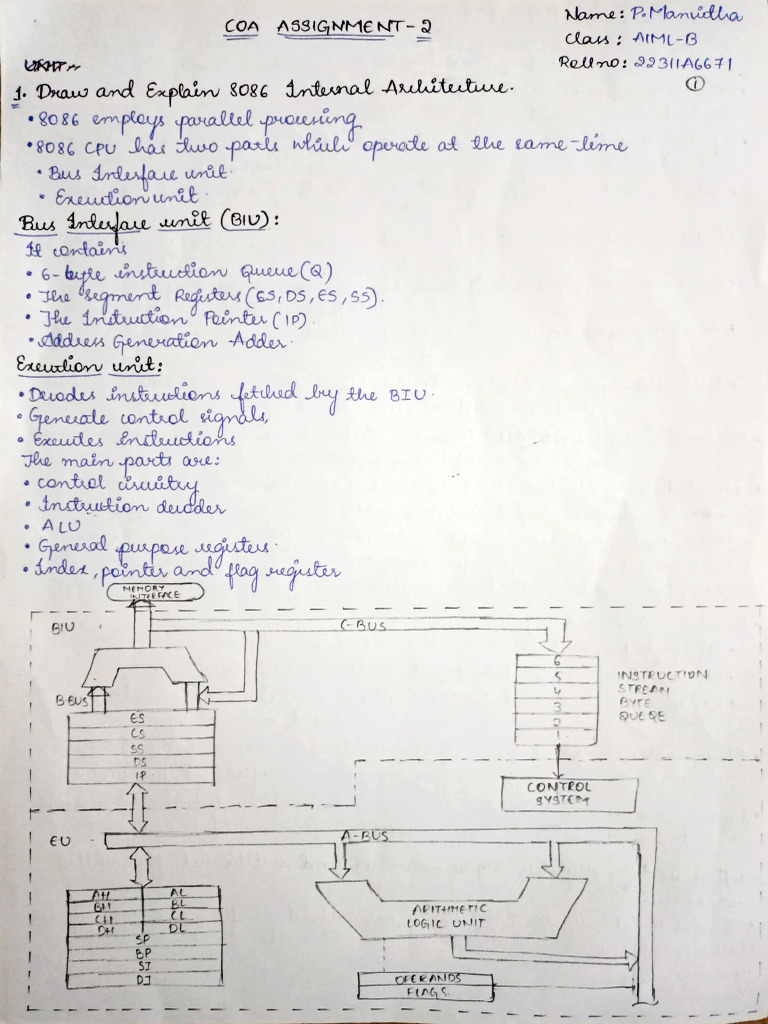 COA ASSIGNMENT-2
Name: P.Manvidha
Class: AIML-B
Rollno: 22311A6671
1
1. Draw and Explain 8086 Internal Architecture.
• 8086 employs parallel processing
• 8086 CPU has two parts which operate at the same time
• Bus Interface unit.
• Execution unit.
Bus Interface unit (BIU):
It contains
• 6-byte instruction Queue(Q)
• The Segment Registers(CS, DS, ES, SS).
• The Instruction Pointer (IP).
• Address Generation Adder.
Execution unit:
• Decodes instructions fetched by the BIU.
• Generate control signals,
• Executes Instructions
The main parts are:
• Control circuitry
• Instruction decoder
• ALU
• General purpose registers.
• Index, pointer and flag register
MEMORY
INTERFACE
BIU
C-BUS
B-BUS
ES
CS
SS
DS
IP
6
5
4
3
2
INSTRUCTION
STREAM
BYTE
QUEUE
CONTROL
SYSTEM
EU
A-BUS
AH AL
BH BL
CH CL
DH DL
SP
BP
SI
DI
ARITHMETIC
LOGIC UNIT
OPERANDS
FLAGS